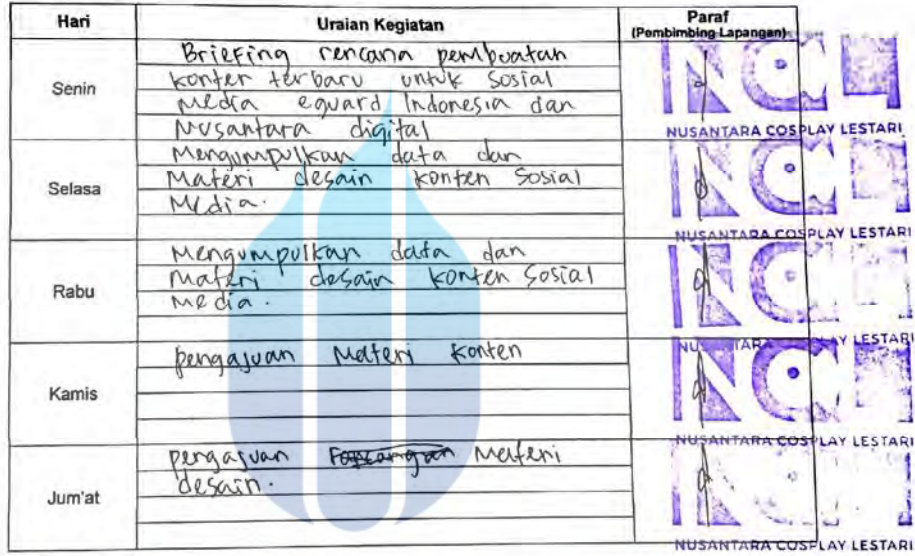 Hari
Uraian Kegiatan
Paraf
(Pembimbing Lapangan)
Senin
Briefing rencana pembuatan
konten terbaru untuk Sosial
Media eguard Indonesia dan
Nusantara digital
NUSANTARA COSPLAY LESTARI
Selasa
Mengumpulkan data dan
Materi desain konten Sosial
Media.
NUSANTARA COSPLAY LESTARI
Rabu
Mengumpulkan data dan
Materi desain konten Sosial
Media.
NUSANTARA COSPLAY LESTARI
Kamis
pengajuan Materi Konten
NUSANTARA COSPLAY LESTARI
Jum'at
pengajuan Materi
desain.
NUSANTARA COSPLAY LESTARI